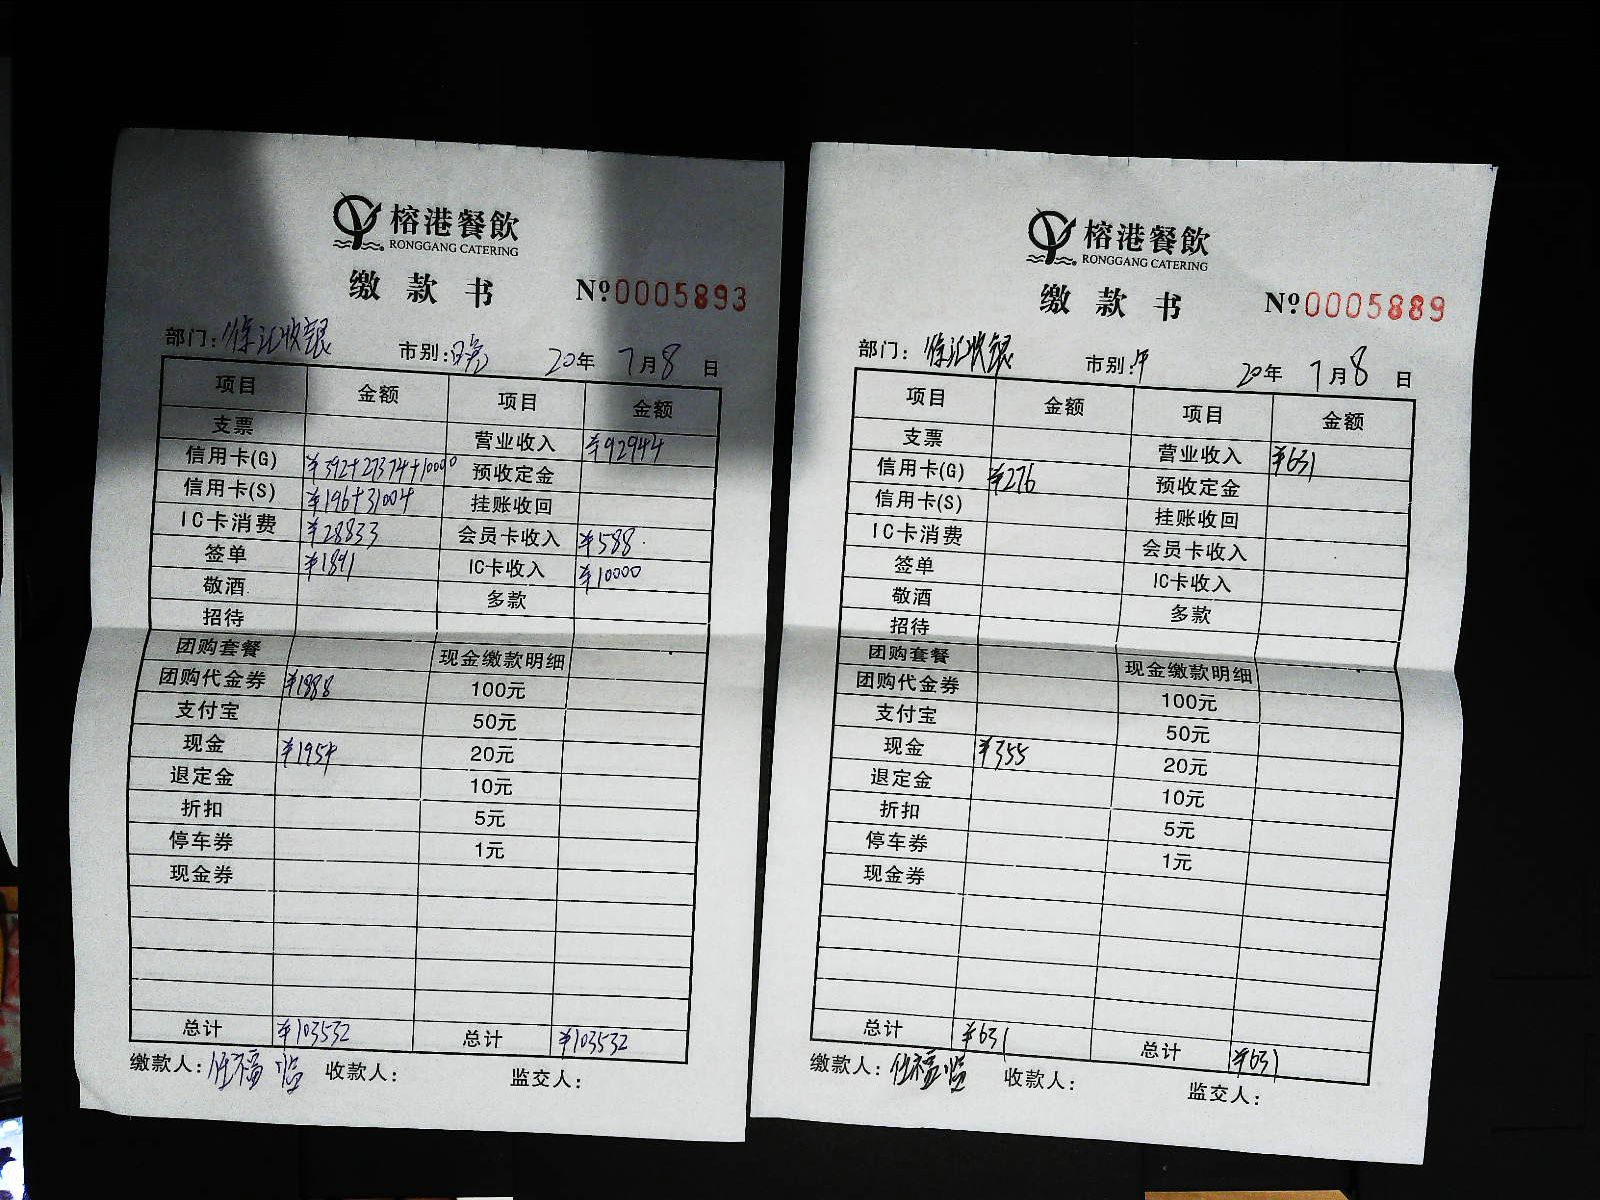 榕港餐飲
RONGGANG CATERING
缴款书 №0005893
部门：徐汇收银 市别：晚 20年 7月8日
项目 金额 项目 金额
支票 营业收入 ¥92944
信用卡(G) ¥392+27374+10000 预收定金
信用卡(S) ¥196+31004 挂账收回
IC卡消费 ¥28833 会员卡收入 ¥588
签单 ¥1891 IC卡收入 ¥10000
敬酒 多款
招待
团购套餐 现金缴款明细
团购代金券 ¥1888 100元
支付宝 50元
现金 ¥1954 20元
退定金 10元
折扣 5元
停车券 1元
现金券
总计 ¥103532 总计 ¥103532
缴款人：任福临 收款人： 监交人：
榕港餐飲
RONGGANG CATERING
缴款书 №0005889
部门：徐汇收银 市别：午 20年 7月8日
项目 金额 项目 金额
支票 营业收入 ¥631
信用卡(G) ¥276 预收定金
信用卡(S) 挂账收回
IC卡消费 会员卡收入
签单 IC卡收入
敬酒 多款
招待
团购套餐 现金缴款明细
团购代金券 100元
支付宝 50元
现金 ¥355 20元
退定金 10元
折扣 5元
停车券 1元
现金券
总计 ¥631 总计 ¥631
缴款人：任福临 收款人： 监交人：